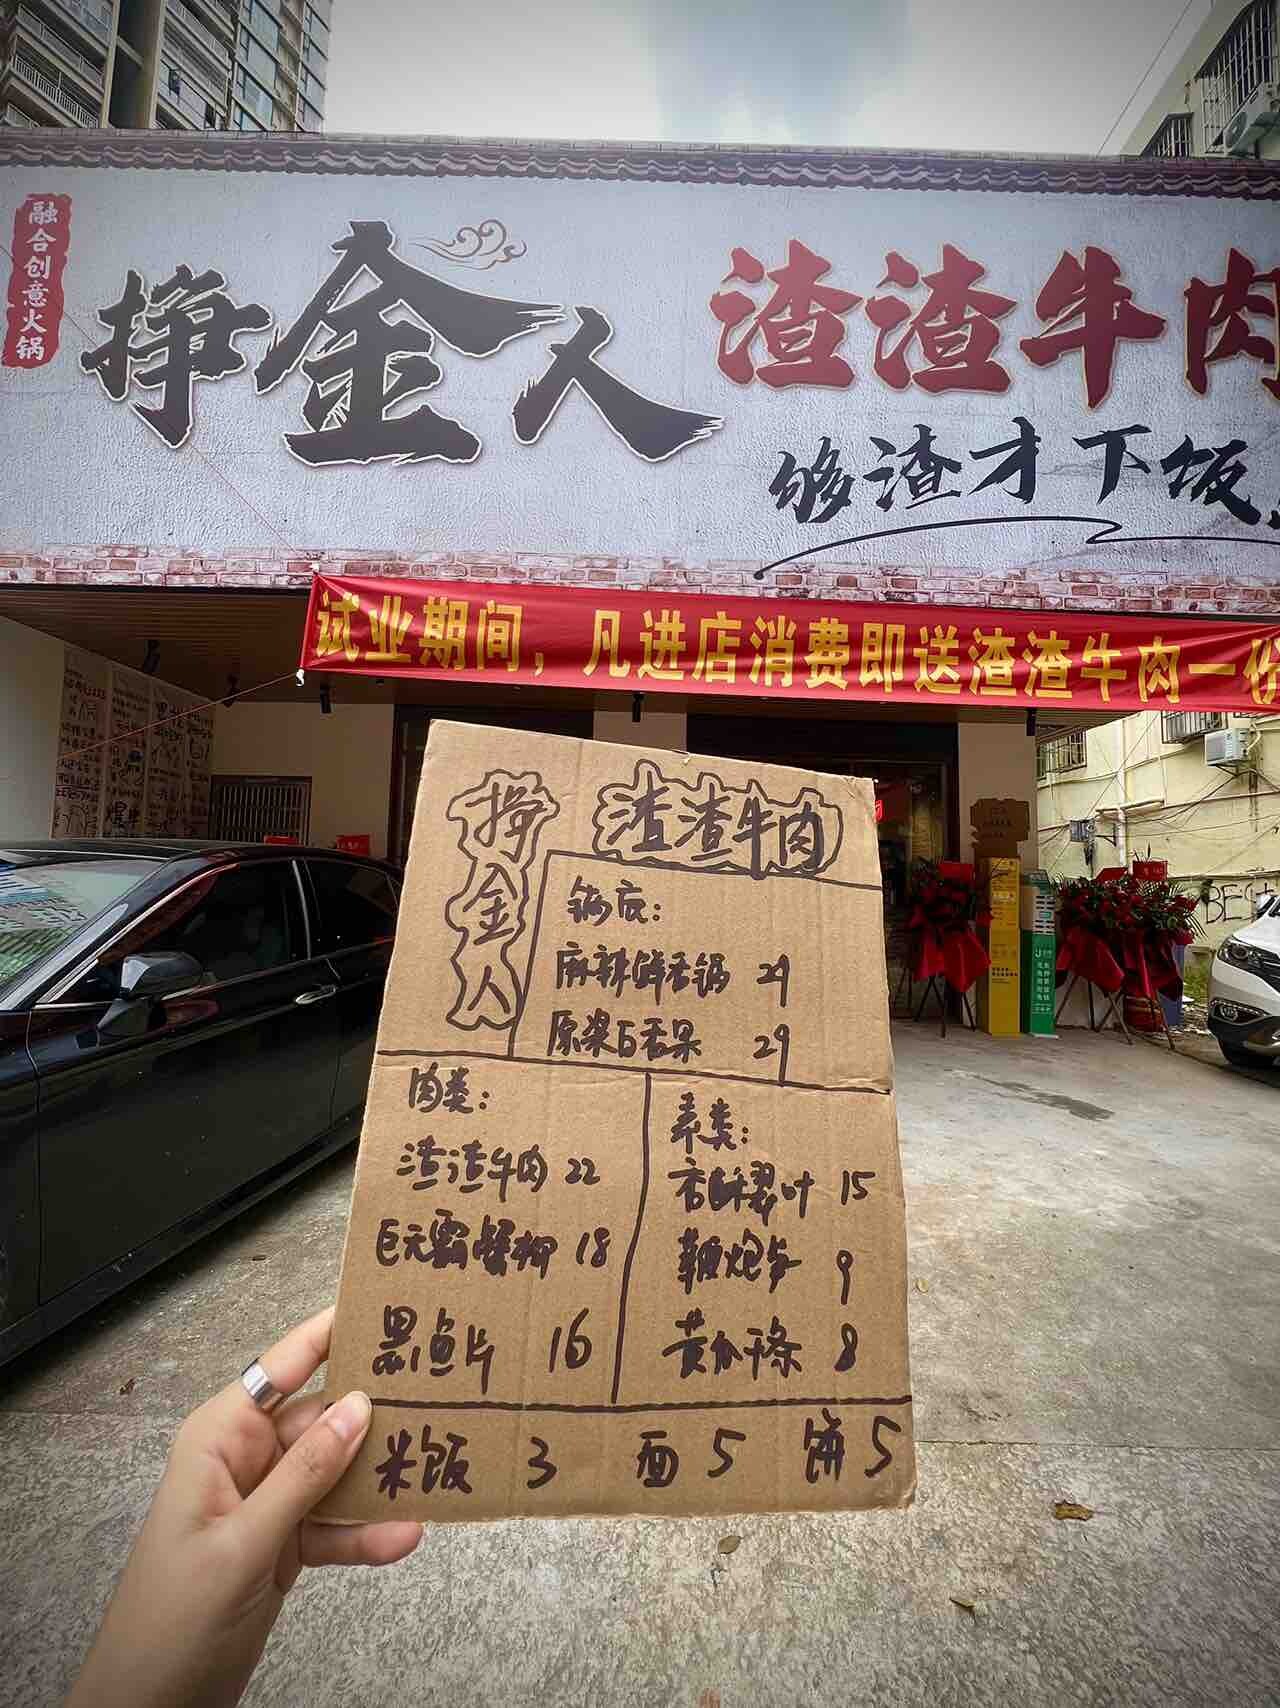 融合创意火锅
挣金人
渣渣牛肉
够渣才下饭
试业期间，凡进店消费即送渣渣牛肉一份
挣金人
渣渣牛肉
锅底：
麻辣鲜香锅 29
原浆百香果 29
肉类：
渣渣牛肉 22
巨无霸蟹柳 18
黑鱼片 16
素类：
香酥翠叶 15
鞭炮笋 9
黄瓜干条 8
米饭 3 面 5 饼 5
BEST